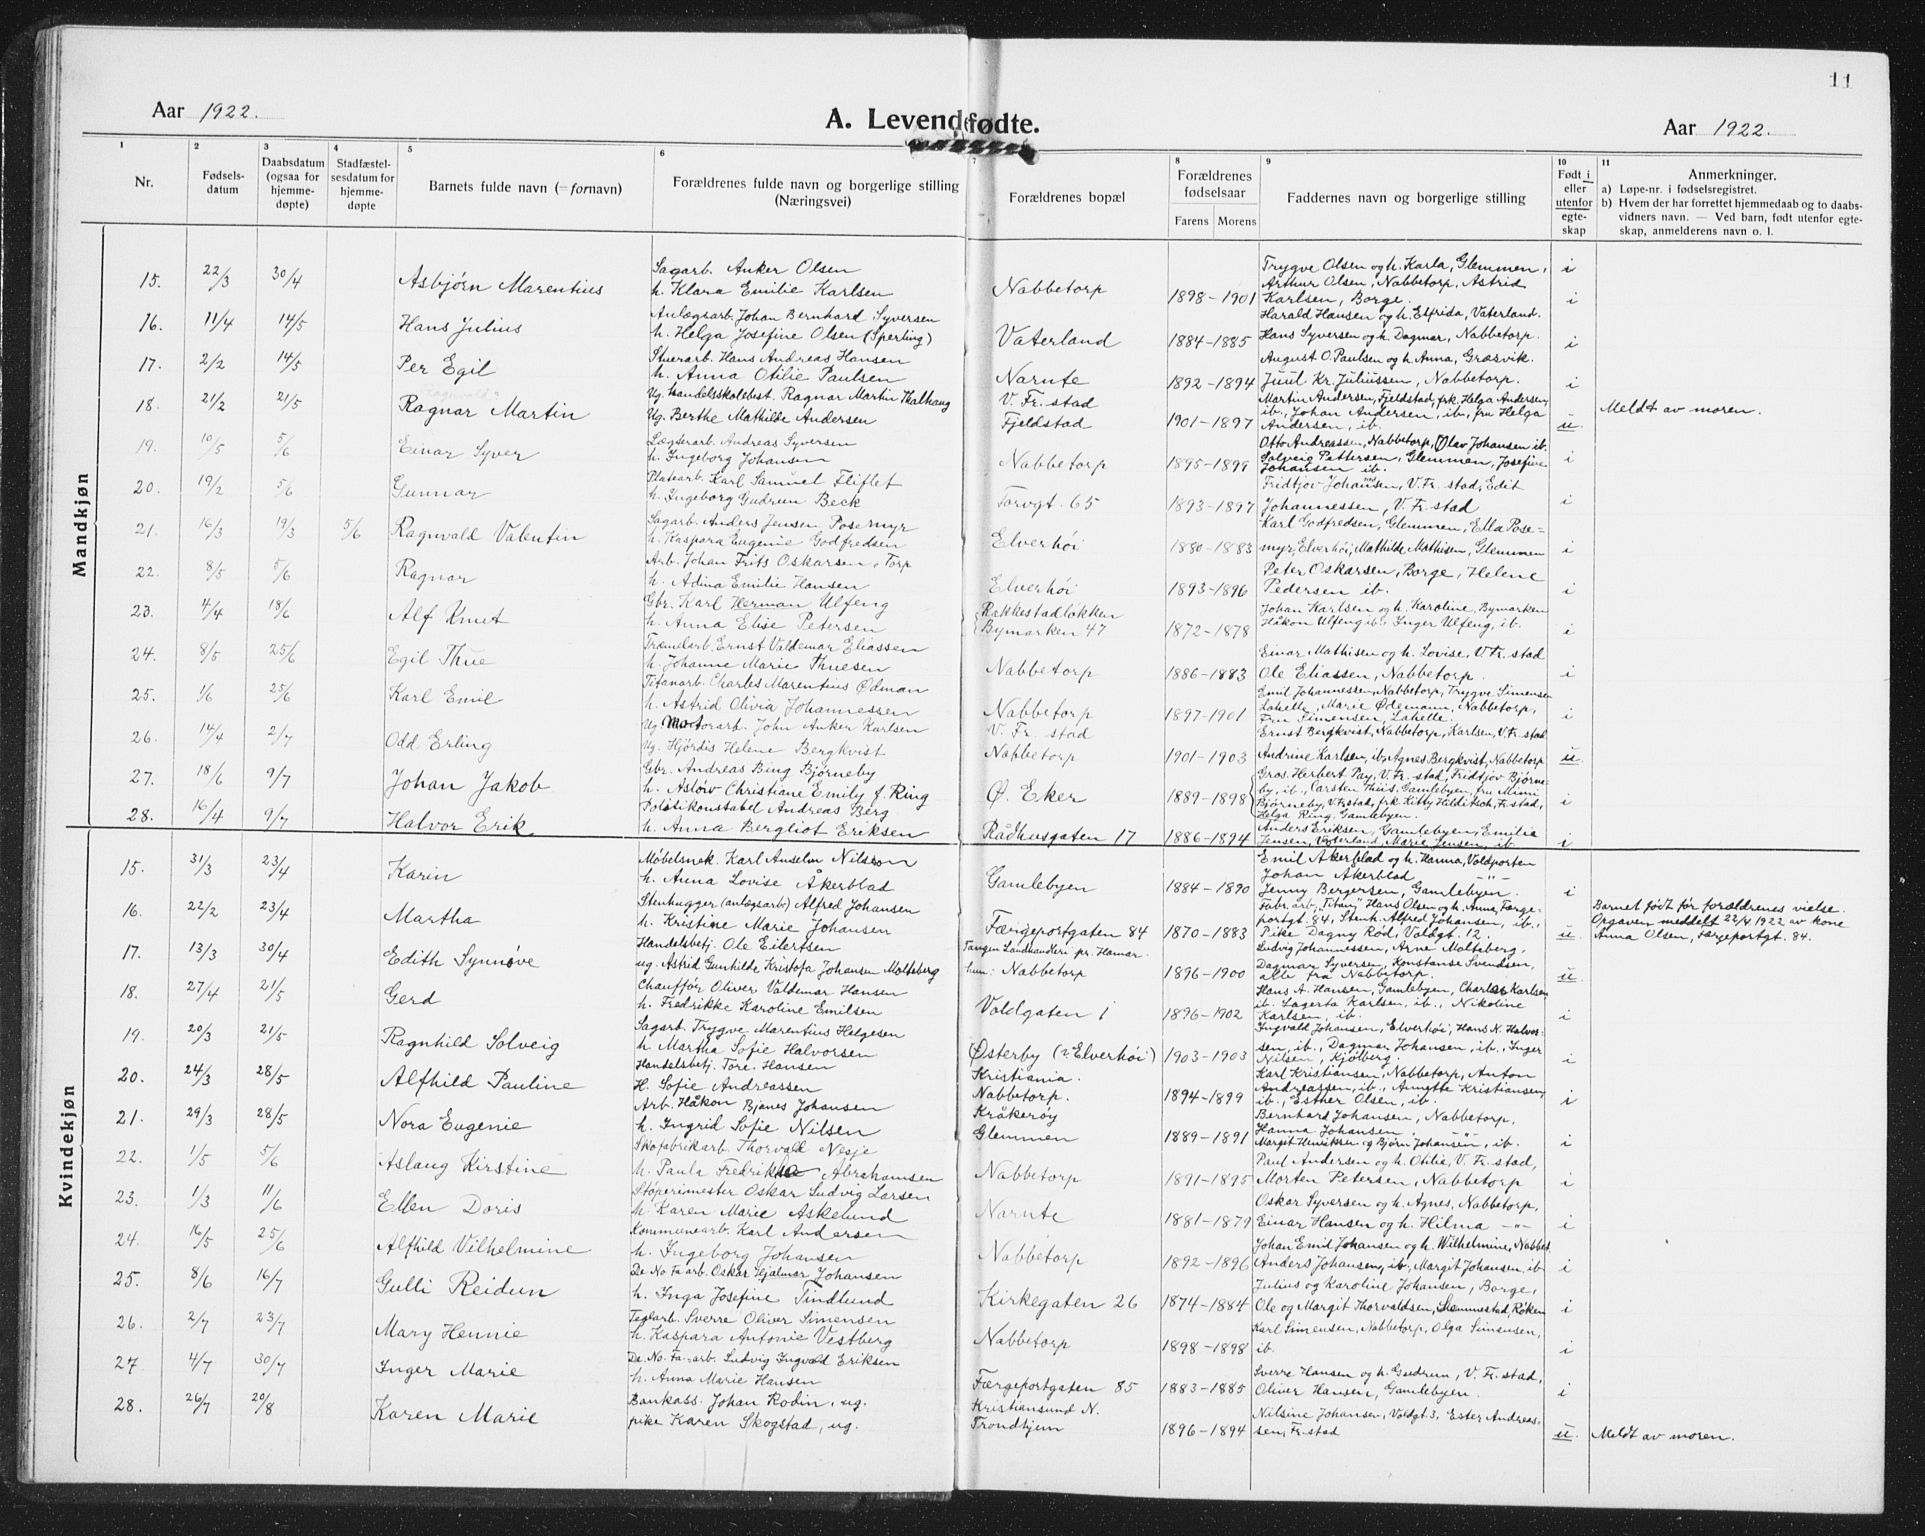 11
Aar 1922.
A. Levendefødte.
Aar 1922.
1 2 3 4 5 6 7 8 9 10 11
Nr.
Fødsels-
datum
Daabsdatum
(ogsaa for
hjemme-
døpte)
Stadfæstel-
sesdatum for
hjemme-
døpte
Barnets fulde navn (= fornavn)
Forældrenes fulde navn og borgerlige stilling
(Næringsvei)
Forældrenes bopæl
Forældrenes
fødselsaar
Farens Morens
Faddernes navn og borgerlige stilling
Født i
eller
utenfor
egte-
skap
Anmerkninger.
a) Løpe-nr. i fødselsregistret.
b) Hvem der har forrettet hjemmedaab og to daabs-
vidners navn. — Ved barn, født utenfor egte-
skap, anmelderens navn o. l.
Mandkjøn
15. 22/3 30/4 Asbjørn Marentius
Sagarb. Anker Olsen
h. Klara Emilie Karlsen
Nabbetorp 1898-1901
Trygve Olsen og h. Karla, Glemmen, i
Arthur Olsen, Nabbetorp, Astrid
Karlsen, Borge. i
16. 11/4 14/5 Hans Julius
Anlægsarb. Johan Bernhard Syversen
h. Helga Josefine Olsen (Sperling)
Vaterland 1884-1885
Harald Hansen og h. Elfrida, Vaterland.
Hans Syversen og h. Dagmar, Nabbetorp. i
17. 2/2 14/5 Per Egil
Stuerarb. Hans Andreas Hansen
h. Anna Otilie Paulsen
Narnte 1892-1894
August O. Paulsen og h. Anna, Græsvik.
Juul Kr. Juliussen, Nabbetorp. i
18. 21/2 21/5 Ragnar Martin
Ug. Handelsskolebest. Ragnar Martin Thalhaug
Ug. Berthe Mathilde Andersen
V. Fr. stad
Fjeldstad 1901-1897
Martin Andersen, Fjeldstad, frk. Helga Andersen,
ib., Johan Andersen, ib., fru Helga
Andersen, ib. u.
Meldt av moren.
19. 10/5 5/6 Einar Syver
Lægterarb. Andreas Syversen
h. Ingeborg Johansen
Nabbetorp 1895-1899
Otto Andreassen, Nabbetorp, Olav Johansen ib.
Solveig Pettersen, Glemmen, Josefine
Johansen ib. i
20. 19/2 5/6 Gunnar
Platearb. Karl Samuel Fliflet
h. Ingeborg Gudrun Beck
Torvgt. 65 1893-1897
Fridtjov Johansen, V. Fr. stad, Edit
Johannessen, V. Fr. stad i
21. 16/3 19/3 5/6 Ragnvald Valentin
Sagarb. Anders Jensen Posemyr
h. Kaspara Eugenie Godfredsen
Elverhøi 1880-1883
Karl Godfredsen, Glemmen, Ella Pose-
myr, Elverhøi, Mathilde Mathisen, Glemmen i
22. 8/5 5/6 Ragnar
Arb. Johan Frits Oskarsen, Torp
h. Adina Emilie Hansen
Elverhøi 1893-1896
Peter Oskarsen, Borge, Helene
Pedersen ib. i
23. 4/4 18/6 Alf Knut
Gbr. Karl Herman Ulfeng
h. Anna Elise Petersen
Rakkestadløkken
Bymarken 47 1872-1878
Johan Karlsen og h. Karoline, Bymarken
Håkon Ulfeng ib., Inger Ulfeng, ib. i
24. 8/5 25/6 Egil Thue
Trævarb. Ernst Valdemar Eliassen
h. Johanne Marie Thuesen
Nabbetorp 1886-1883
Einar Mathisen og h. Lovise, V. Fr. stad
Ole Eliassen, Nabbetorp. i
25. 1/6 25/6 Karl Emil
Titanarb. Charles Marentius Ødman
h. Astrid Olivia Johannessen
Nabbetorp 1897-1901
Emil Johannessen, Nabbetorp, Trygve Simensen
Lahelle, Marie Ødemann, Nabbetorp,
Fru Simensen, Lahelle. i
26. 14/4 2/7 Odd Erling
Ug. Motorarb. John Anker Karlsen
Ug. Hjørdis Helene Bergkvist
V. Fr. stad
Nabbetorp 1901-1903
Ernst Bergkvist, Nabbetorp, Karlsen, V. Fr. stad
Andrine Karlsen, ib., Agnes Bergkvist, Nabbetorp u.
27. 18/6 9/7 Johan Jakob
Gbr. Andreas Bing Bjørneby
h. Asløv Christiane Emily f. Ring
Ø. Eker 1889-1898
Gros. Herbert Pay, V. Fr. stad, Fridtjov Bjørne-
by, ib., Carsten Thiis, Gamlebyen, fru Mimi
Bjørneby, V. Fr. stad, frk. Kitty Hilditsch, Fr. stad, i
Helga Ring, Gamlebyen.
28. 16/4 9/7 Halvor Erik
Politikonstabel Andreas Berg
h. Anna Bergliot Eriksen
Rådhusgaten 17 1886-1894
Anders Eriksen, Gamlebyen, Emilie
Jensen, Vaterland, Marie Jensen, ib. i
Kvindekjøn
15. 31/3 23/4 Karin
Møbelsnek. Karl Anselm Nilsson
h. Anna Lovise Åkerblad
Gamlebyen 1884-1890
Emil Åkerblad og h. Hanna, Voldporten
Johan Åkerblad -"-
Jenny Bergersen, Gamlebyen. i
16. 22/2 23/4 Martha
Stenhugger (anlægsarb.) Alfred Johansen
h. Kristine Marie Johansen
Færgeportgaten 84 1870-1883
Fabr. arb. "Titan" Hans Olsen og h. Anna, Færge-
portgt. 84, Stenh. Alfred Johansen, ib.,
Pike Dagny Rød, Voldgt. 12. u.
Barnet født før forældrenes vielse.
Opgaven meddelt 22/4 1922 av kone
Anna Olsen, Færgeportgt. 84.
17. 13/3 30/4 Edith Synnøve
Handelsbetj. Ole Eilertsen
ug. Astrid Gunhilde Kristofa Johansen Molteberg
Tangen Landhandleri pr. Hamar.
hun: Nabbetorp 1896-1900
Ludvig Johannessen, Arne Molteberg,
Dagmar Syversen, Konstanse Svendsen,
alle fra Nabbetorp. u.
18. 27/4 21/5 Gerd
Chauffør Oliver Valdemar Hansen
h. Fredrikke Karoline Emilsen
Voldgaten 1 1896-1902
Hans A. Hansen, Gamlebyen, Charles Karlsen
ib. Lagerta Karlsen, ib., Nikoline
Karlsen, ib. i
19. 20/3 21/5 Ragnhild Solveig
Sagarb. Trygve Marentius Helgesen
h. Martha Sofie Halvorsen
Østerby (v. Elverhøi) 1903-1903
Ingvald Johansen, Elverhøi, Hans K. Halvor-
sen, ib., Dagmar Johansen, ib., Inger
Nilsen, Kjølberg. i
20. 24/3 28/5 Alfhild Pauline
Handelsbetj. Tore Hansen
H. Sofie Andreassen
Kristiania.
Nabbetorp. 1894-1899
Karl Kristiansen, Nabbetorp, Anton
Andreassen, ib., Annette Kristiansen
ib., Esther Olsen, ib. i
21. 29/3 28/5 Nora Eugenie
Arb. Håkon Bjanes Johansen
h. Ingrid Sofie Nilsen
Kråkerøy
Glemmen 1889-1891
Bernhard Johansen, Nabbetorp,
Hanna Johansen, -"-
Margit Henriksen og Bjørn Johansen, ib. i
22. 1/5 5/6 Aslaug Kirstine
Skofabrikarb. Thorvald Nesje
h. Paula Fredrikke Abrahamsen
Nabbetorp 1891-1895
Paul Andersen og h. Otilie, V. Fr. stad,
Morten Petersen, Nabbetorp i
23. 1/3 11/6 Ellen Doris
Støperimester Oskar Ludvig Larsen
h. Karen Marie Askelund
Narnte 1881-1879
Oskar Syversen og h. Agnes, Nabbetorp,
Einar Hansen og h. Hilma -"- i
24. 16/5 25/6 Alfhild Vilhelmine
Kommunearb. Karl Andersen
h. Ingeborg Johansen
Nabbetorp 1892-1896
Johan Emil Johansen og h. Wilhelmine, Nabbet.
Anders Johansen, ib., Margit Johansen, ib. i
25. 8/6 16/7 Gulli Reidun
De No Fa arb. Oskar Hjalmar Johansen
h. Inga Josefine Tindlund
Kirkegaten 26 1874-1884
Julius og Karoline Johansen, Borge,
Ole og Margit Thorvaldsen, Slemmestad, Røken i
26. 2/7 23/7 Mary Hennie
Teglarb. Sverre Oliver Simensen
h. Kaspara Antonie Vestberg
Nabbetorp 1898-1898
Karl Simensen, Nabbetorp, Olga Simensen,
ib. i
27. 4/7 30/7 Inger Marie
De. No. Fa-arb. Ludvig Ingvald Eriksen
h. Anna Marie Hansen
Færgeportgaten 85 1883-1885
Sverre Hansen og h. Gudrun, V. Fr. stad,
Oliver Hansen, Gamlebyen. i
28. 26/7 20/8 Karen Marie
Bankass. Johan Rodin, ug.
pike Karen Skogstad, ug.
Kristiansund N.
Trondhjem 1896-1894
Nilsine Johansen, Voldgt. 3, Ester Andreas-
sen, Fr. stad u.
Meldt av moren.